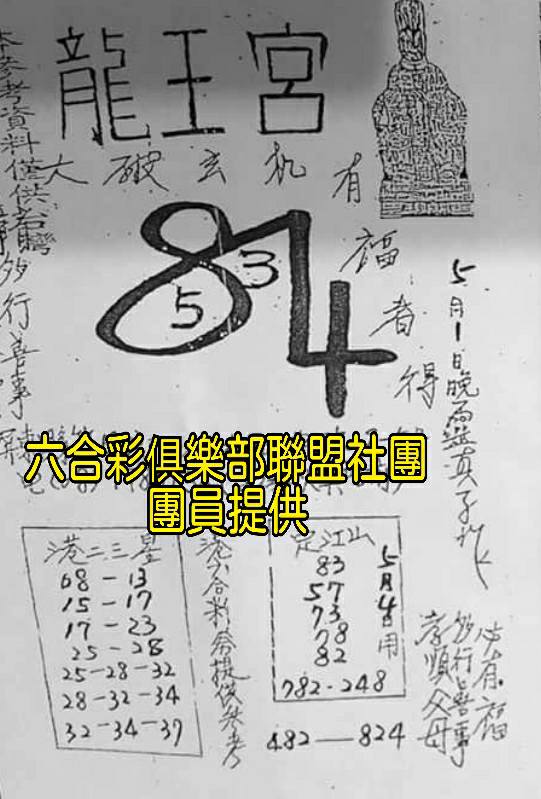 龍王宮
大破玄机有福者得
84
5
3
本參考資料僅供
多行善事
5月1日晚
六合彩俱樂部聯盟社團
團員提供
港二三星
08-13
15-17
17-23
25-28
25-28-32
28-32-34
32-34-37
港六合彩券提供參考
定江山
83
57
73
78
82
782-248
5月4日用
482—824
多行善事
孝順父母